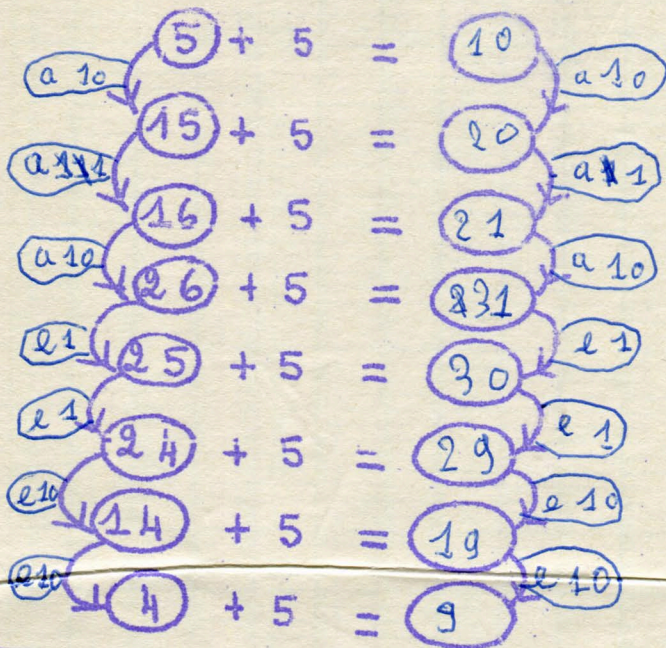 5 + 5 = 10
a 10 a 10
15 + 5 = 20
a 1 a 1
16 + 5 = 21
a 10 a 10
26 + 5 = 31
e 1 e 1
25 + 5 = 30
e 1 e 1
24 + 5 = 29
e 10 e 10
14 + 5 = 19
e 10 e 10
4 + 5 = 9